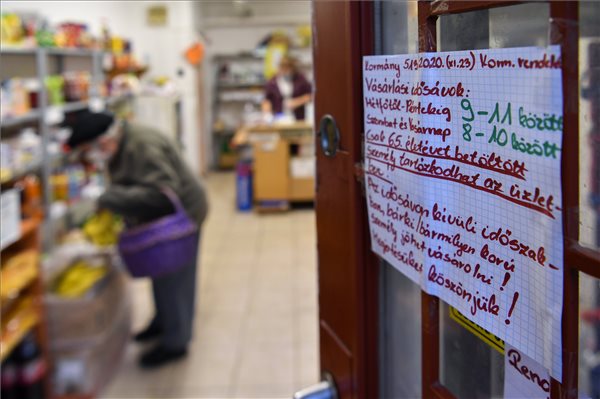 Kormány 513/2020. (XI.23) Korm. rendelet
Vásárlási idősávok:
Hétfőtől-Péntekig 9-11 között
Szombat és vasárnap 8-10 között
Csak 65. életévet betöltött
személy tartózkodhat az üzlet-
be.
Az idősávon kívüli időszak-
ban, bárki/bármilyen korú
személy jöhet vásárolni!
Megértésüket köszönjük!
Rend